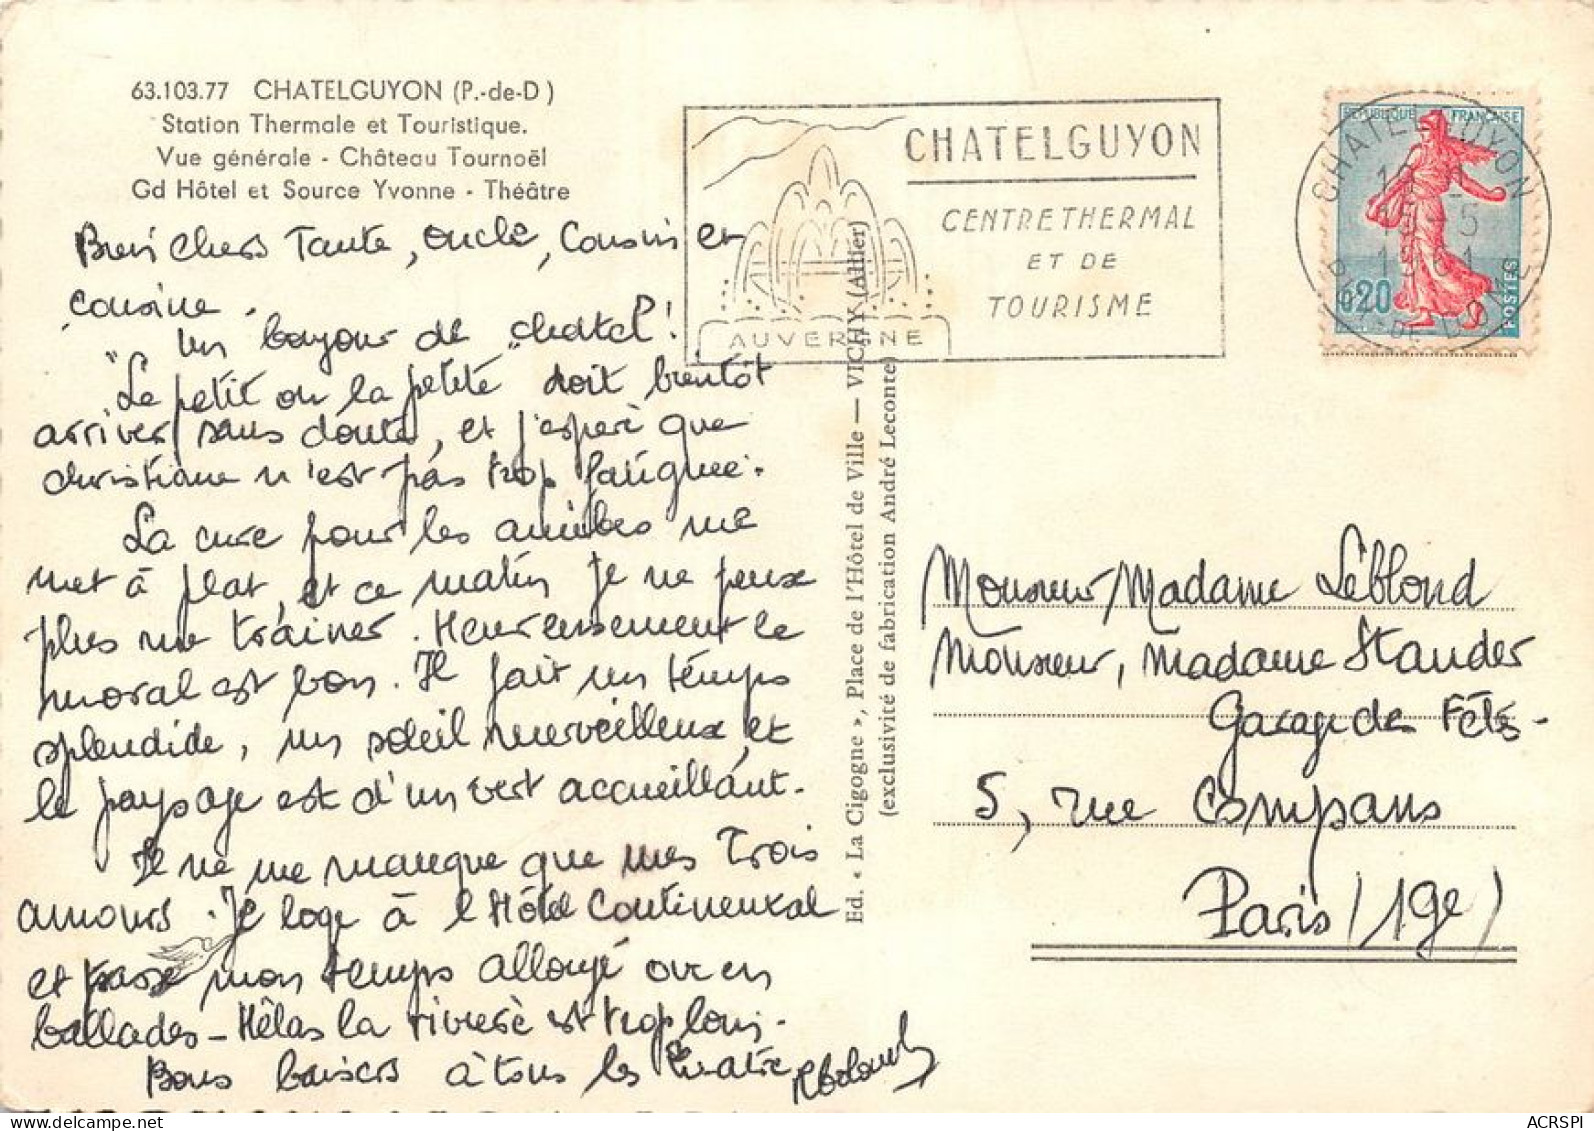 63.103.77 CHATELGUYON (P.-de-D)
Station Thermale et Touristique.
Vue générale - Château Tournoël
Gd Hôtel et Source Yvonne - Théâtre
Bien chers Tante, oncle, cousin et
cousine.
Un bonjour de "chatel"!
"Le petit ou la petite" doit bientôt
arriver sans doute, et j'espère que
christiane n'est pas trop fatiguée.
La cure pour les amibes me
met à plat, et ce matin je ne peux
plus me trainer. Heureusement le
moral est bon. Il fait un temps
splendide, un soleil merveilleux, et
le paysage est d'un vert accueillant.
Il ne me manque que mes Trois
amours. Je loge à l'Hôtel Continental
et passe mon temps allongé ou en
ballades - Hélas la rivière est trop loin.
Bons baisers à tous les quatre
Ed. « La Cigogne », Place de l'Hôtel de Ville — VICHY (Allier)
(exclusivité de fabrication André Leconte)
CHATELGUYON
CENTRE THERMAL
ET DE
TOURISME
AUVERGNE
REPUBLIQUE FRANÇAISE
0,20
POSTES
CHATELGUYON
15-5
1961
P. DE DOME
Monsieur, Madame Léblond
Monsieur, Madame Stander
Garage des Fêtes -
5, rue Compans
Paris (19e)
ACRSPI